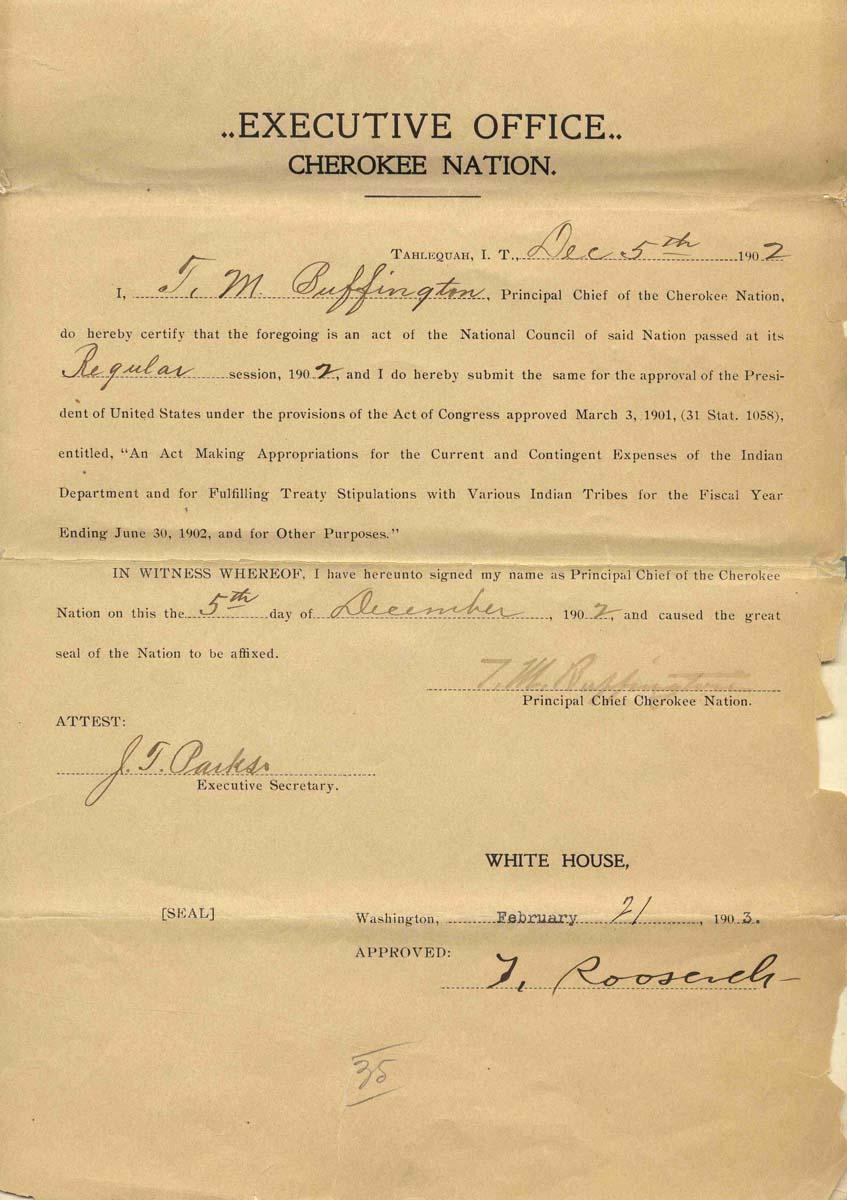 ..EXECUTIVE OFFICE..
CHEROKEE NATION.
TAHLEQUAH, I. T., Dec 5th 1902
I, T. M. Buffington, Principal Chief of the Cherokee Nation,
do hereby certify that the foregoing is an act of the National Council of said Nation passed at its
Regular session, 1902, and I do hereby submit the same for the approval of the Presi-
dent of United States under the provisions of the Act of Congress approved March 3, 1901, (31 Stat. 1058),
entitled, “An Act Making Appropriations for the Current and Contingent Expenses of the Indian
Department and for Fulfilling Treaty Stipulations with Various Indian Tribes for the Fiscal Year
Ending June 30, 1902, and for Other Purposes.”
IN WITNESS WHEREOF, I have hereunto signed my name as Principal Chief of the Cherokee
Nation on this the 5th day of December, 1902, and caused the great
seal of the Nation to be affixed.
T. M. Buffington
Principal Chief Cherokee Nation.
ATTEST:
J. T. Parks
Executive Secretary.
WHITE HOUSE,
[SEAL]
Washington, February 21, 1903.
APPROVED:
T. Roosevelt
35